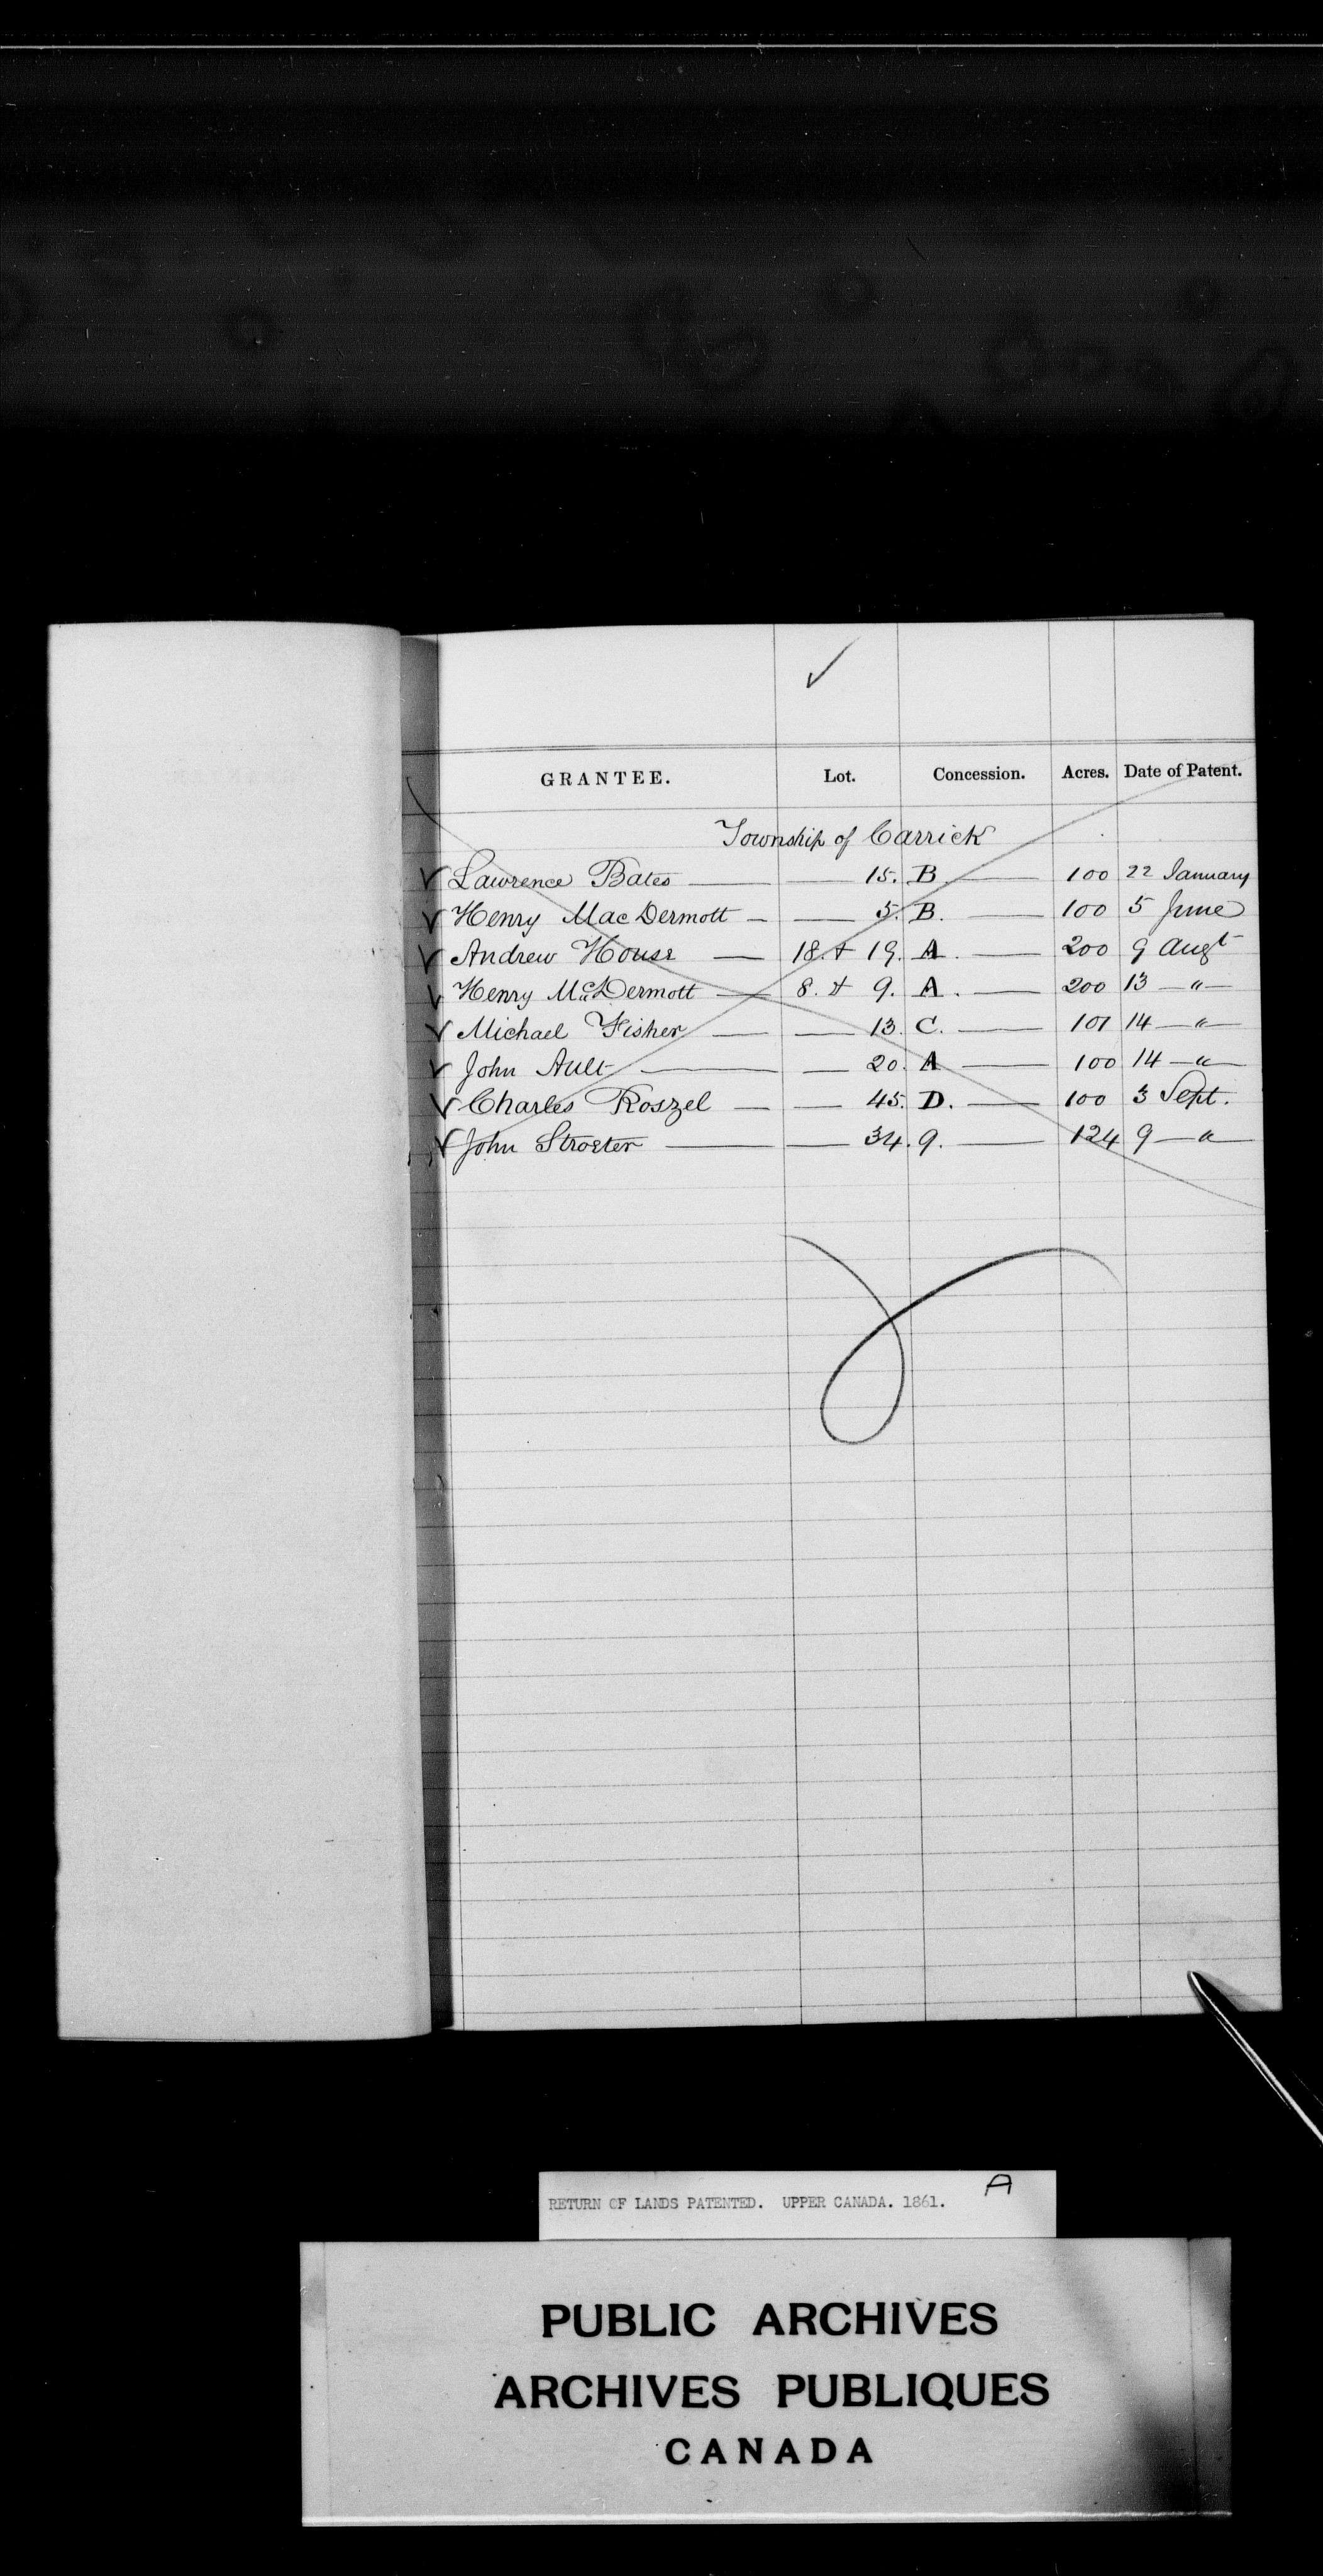 GRANTEE. Lot. Concession. Acres. Date of Patent.
Township of Carrick
Lawrence Bates 15. B 100 22 January
Henry MacDermott 5. B. 100 5 June
Andrew House 18. & 19. A. 200 9 Augt
Henry McDermott 8. & 9. A. 200 13 "
Michael Fisher 13. C. 101 14 "
John Ault 20. A 100 14 "
Charles Roszel 45. D. 100 3 Sept.
John Stroeter 34. 9. 124 9 "
RETURN OF LANDS PATENTED. UPPER CANADA. 1861. A
PUBLIC ARCHIVES
ARCHIVES PUBLIQUES
CANADA